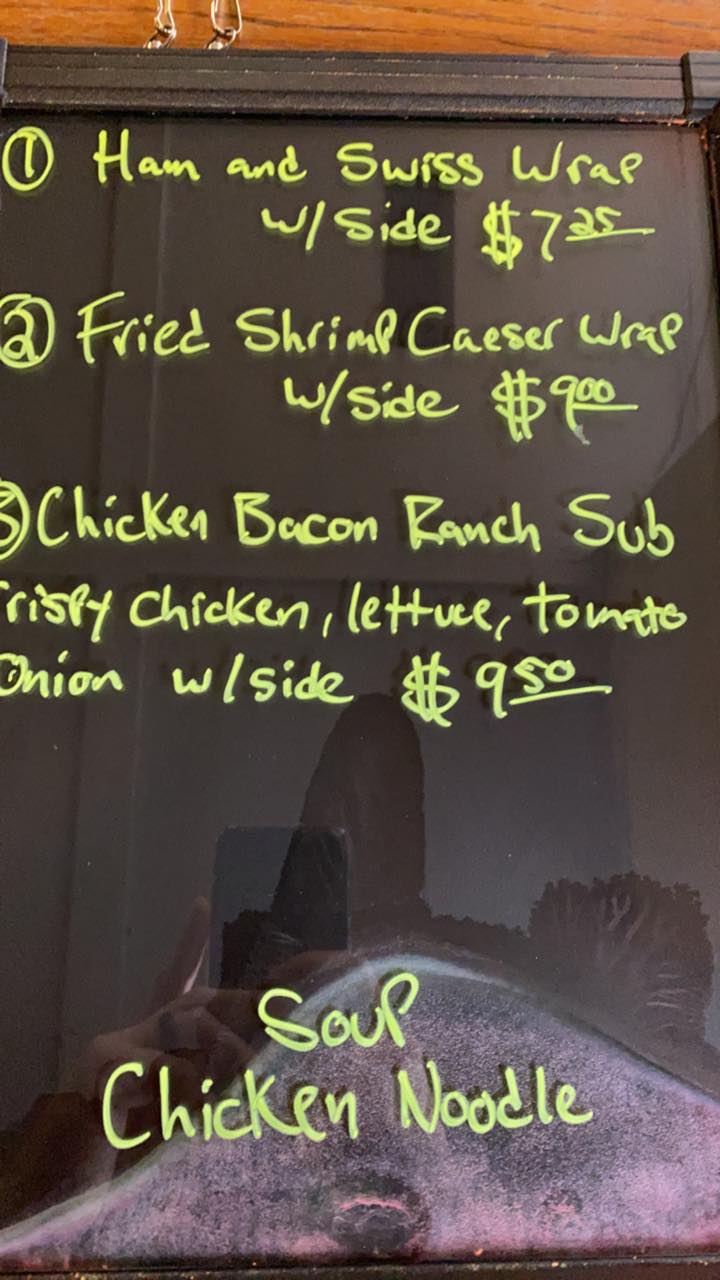 ① Ham and Swiss Wrap
w/ Side $7 25
② Fried Shrimp Caeser Wrap
w/side $9 00
③ Chicken Bacon Ranch Sub
rispy chicken, lettuce, tomato
Onion w/side $9 50
Soup
Chicken Noodle